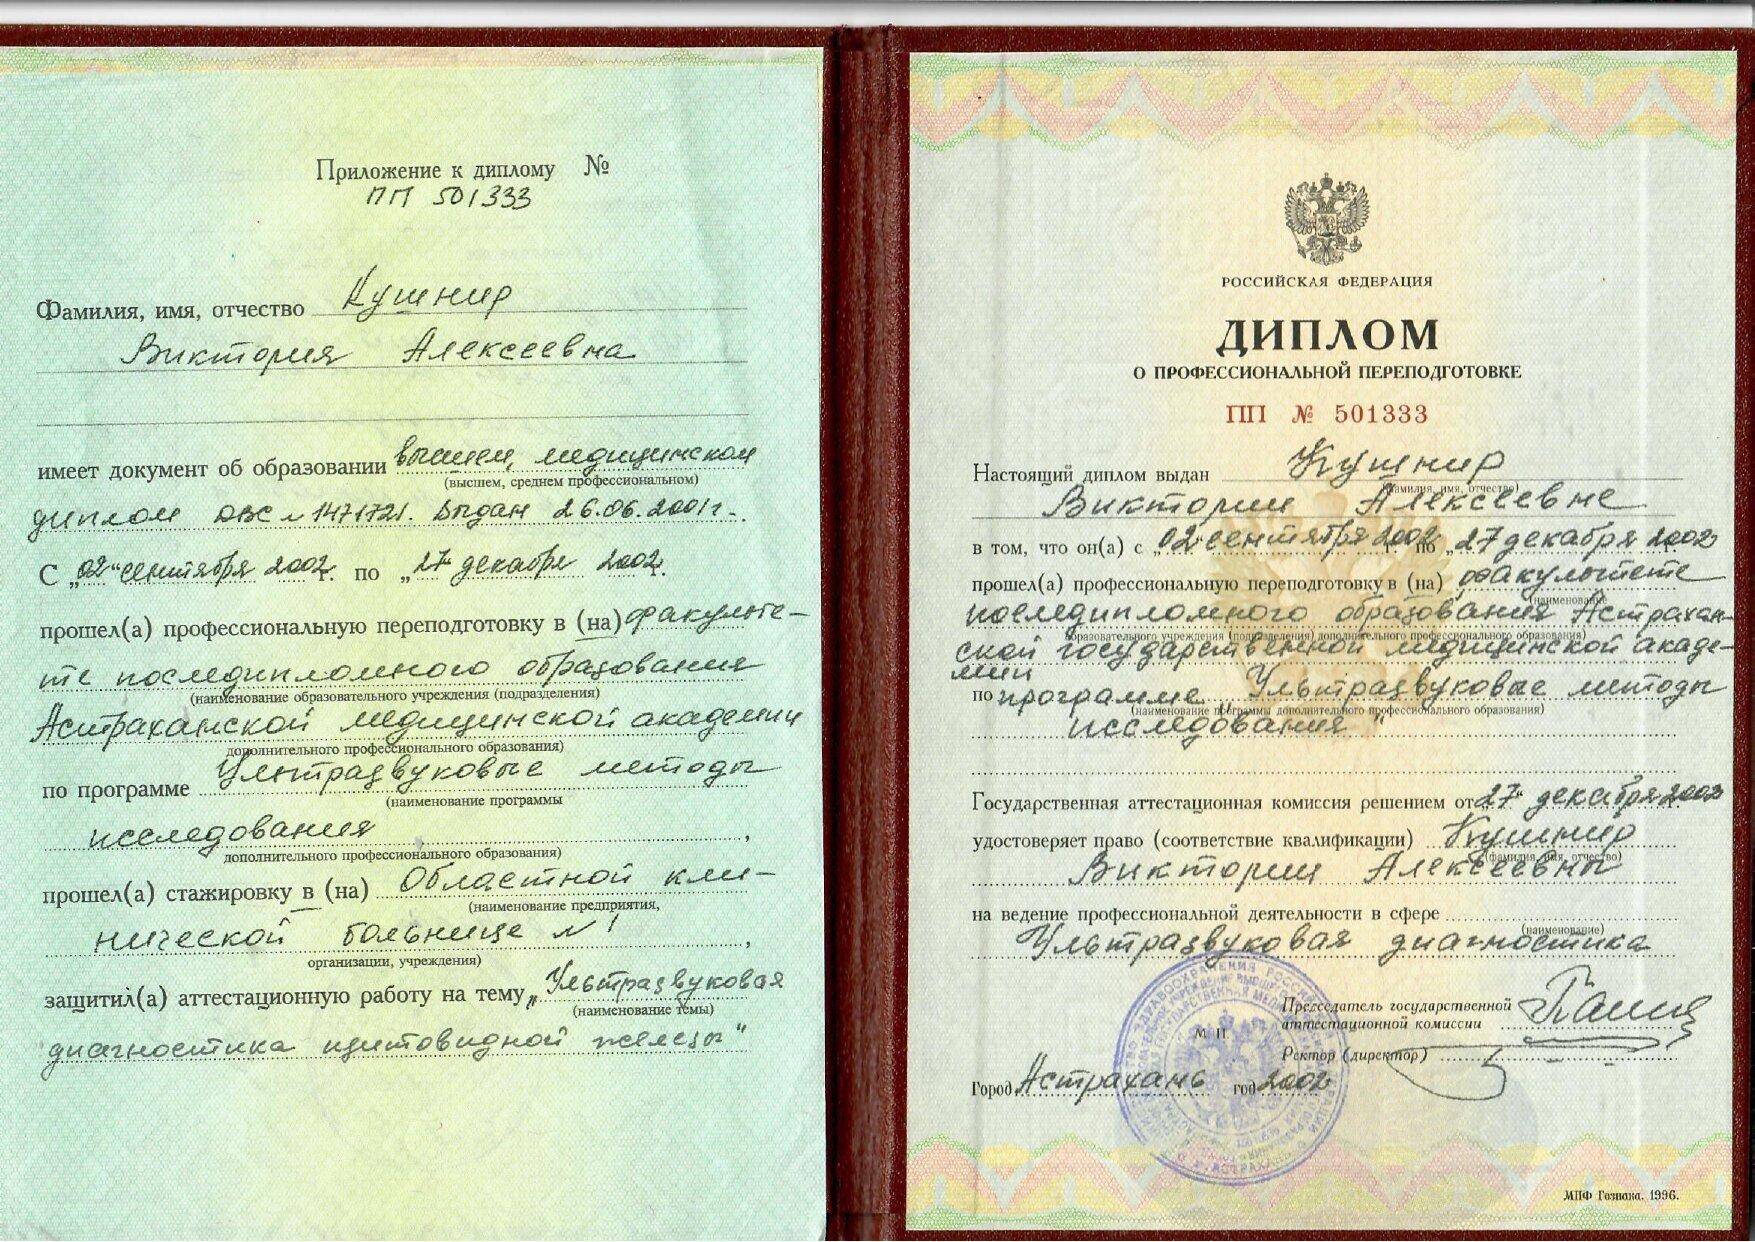 Приложение к диплому №
ПП 501333
Фамилия, имя, отчество Кушнир
Виктория Алексеевна
имеет документ об образовании высшем, медицинском
(высшем, среднем профессиональном)
диплом ДВС № 1471721. Выдан 26.06.2001г.
С „02“ сентября 2002г. по „27“ декабря 2002г.
прошел(а) профессиональную переподготовку в (на) факульте-
те последипломного образования
(наименование образовательного учреждения (подразделения)
Астраханской медицинской академии
дополнительного профессионального образования)
по программе Ультразвуковые методы
(наименование программы
исследования,
дополнительного профессионального образования)
прошел(а) стажировку в (на) Областной кли-
(наименование предприятия,
нической больнице № 1,
организации, учреждения)
защитил(а) аттестационную работу на тему „Ультразвуковая
(наименование темы)
диагностика щитовидной железы"
РОССИЙСКАЯ ФЕДЕРАЦИЯ
ДИПЛОМ
О ПРОФЕССИОНАЛЬНОЙ ПЕРЕПОДГОТОВКЕ
ПП № 501333
Настоящий диплом выдан Кушнир
(фамилия, имя, отчество)
Виктории Алексеевне
в том, что он(а) с „02“ сентября 2002 г. по „27 декабря 2002 г.
прошел(а) профессиональную переподготовку в (на) факультете
(наименование
последипломного образования Астрахан-
образовательного учреждения (подразделения) дополнительного профессионального образования)
ской государственной медицинской акаде-
мии
по программе „Ультразвуковые методы
(наименование программы дополнительного профессионального образования)
исследования"
Государственная аттестационная комиссия решением от 27“ декабря 2002
удостоверяет право (соответствие квалификации) Кушнир
(фамилия, имя, отчество)
Виктории Алексеевны
на ведение профессиональной деятельности в сфере
(наименование)
Ультразвуковая диагностика
Председатель государственной
аттестационной комиссии
М. П.
Ректор (директор)
Город Астрахань год 2002
МПФ Гознака. 1996.